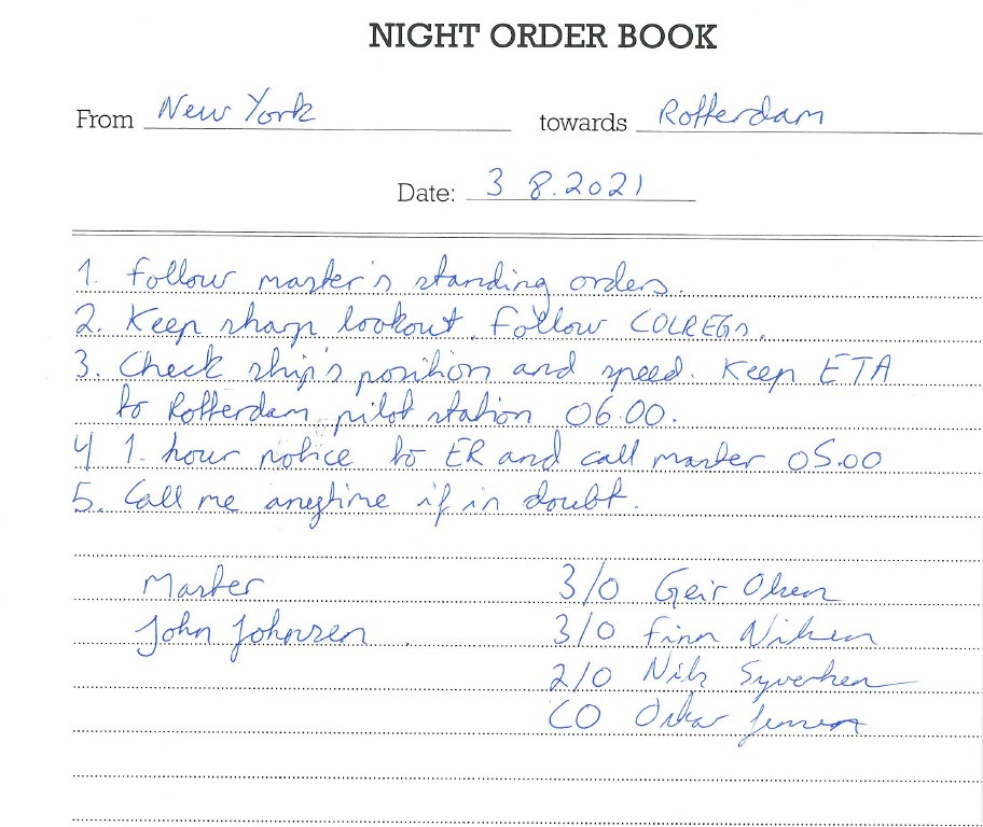 NIGHT ORDER BOOK
From New York towards Rotterdam
Date: 3 8.2021
1. Follow master's standing orders.
2. Keep sharp lookout. Follow COLREGs.
3. Check ship's position and speed. Keep ETA
to Rotterdam pilot station 06.00.
4 1. hour notice to ER and call master 05.00
5. Call me anytime if in doubt.
Master 3/O Geir Olsen
John Johnsen . 3/O Finn Nilsen
2/O Nils Syversen
CO Oskar Jensen